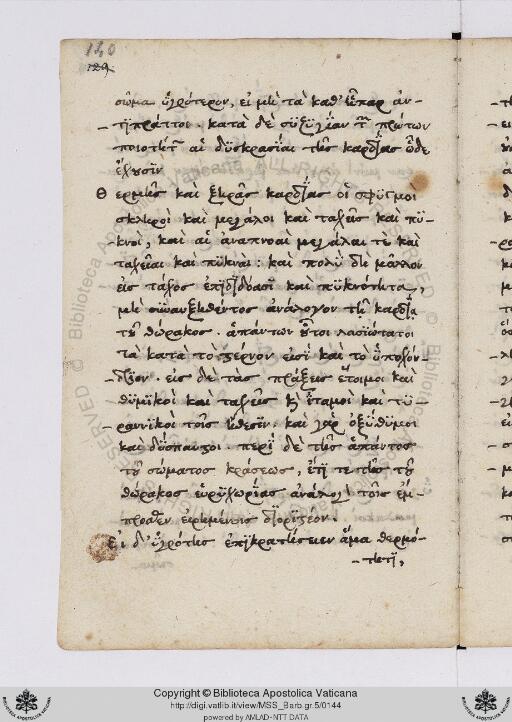 140
129
σῶμα ὑγρότερον, εἰ μὴ τὰ καθ' ἧπαρ ἀν-
τιπράττοι. κατὰ δὲ συζυγίαν τῶν πρώτων
ποιοτήτων αἱ δυσκρασίαι τῆς καρδίας ὧδε
ἔχουσιν
Θερμῆς καὶ ξηρᾶς καρδίας οἱ σφυγμοὶ
σκληροὶ καὶ μεγάλοι καὶ ταχεῖς καὶ πυ-
κνοὶ, καὶ αἱ ἀναπνοαὶ μεγάλαι τὲ καὶ
ταχεῖαι καὶ πυκναὶ: καὶ πολὺ δὴ μᾶλλον
εἰς τάχος ἐπιδιδόασι καὶ πυκνότητα,
μὴ συναυξηθέντος ἀνάλογον τῇ καρδίᾳ
τοῦ θώρακος. ἁπάντων οὗτοι λασιώτατοι
τὰ κατὰ τὸ στέρνον εἰσὶ καὶ τὸ ὑποχόν-
δριον. εἰς δὲ τὰς πράξεις ἕτοιμοι καὶ
θυμικοὶ καὶ ταχεῖς καὶ ἰταμοὶ καὶ τυ-
ραννικοὶ τοῖς ἤθεσιν. καὶ γὰρ ὀξύθυμοι
καὶ δύσπαυστοι. περὶ δὲ τῆς ἅπαντος
τοῦ σώματος κράσεως, ἔτι τε τῆς τοῦ
θώρακος εὐρυχωρίας ἀνάλογον τοῖς ἔμ-
προσθεν εἰρημένοις διοριστέον.
Εἰ δ' ὑγρότης ἐπικρατήσειεν ἅμα θερμό-
τητι,
Copyright © Biblioteca Apostolica Vaticana
http://digi.vatlib.it/view/MSS_Barb.gr.5/0144
powered by AMLAD-NTT DATA